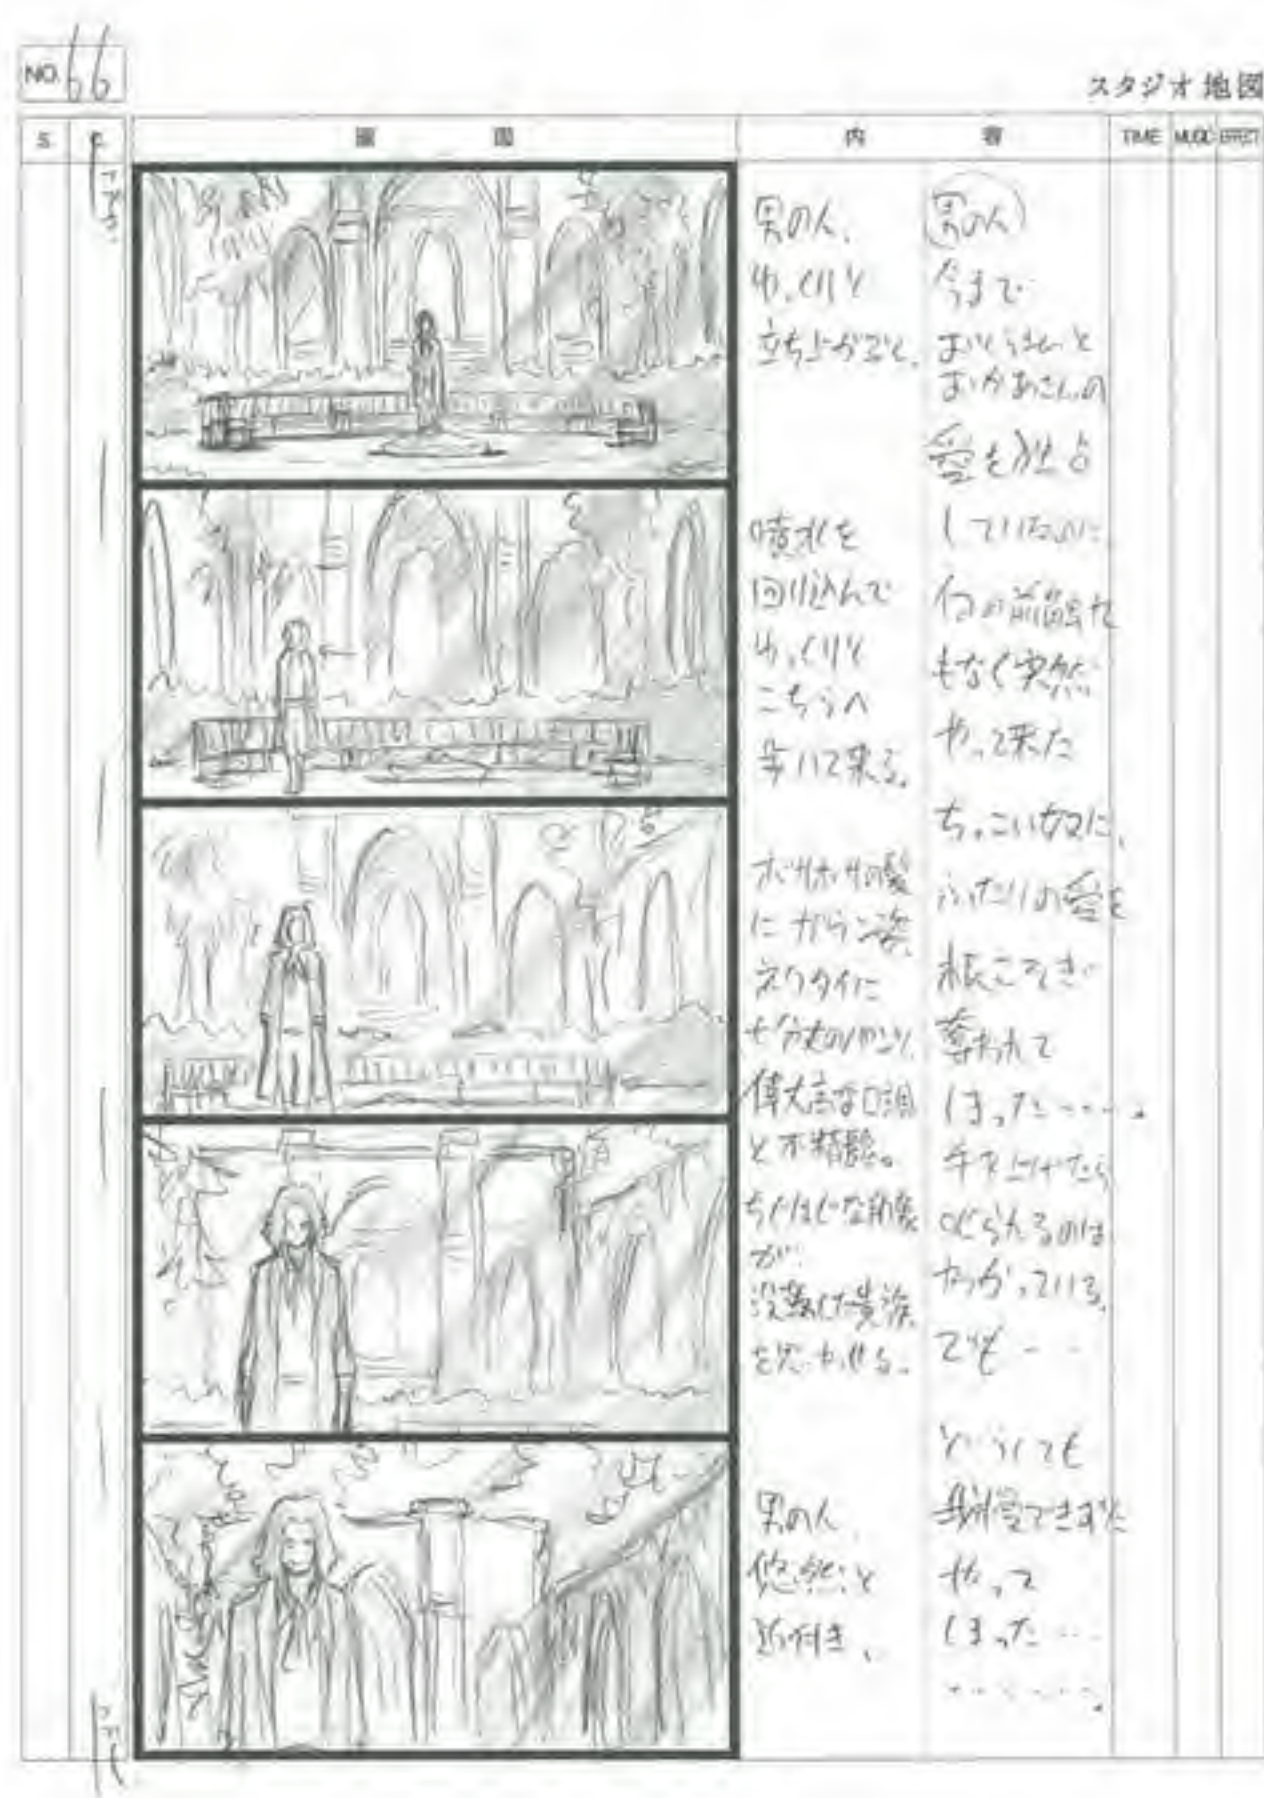 NO. 66
スタジオ地図
S. C. 画面 内容 TIME MUSIC EFFECT
つづき
男の人、
ゆっくりと
立ち上がると、
噴水を
回り込んで
ゆっくりと
こちらへ
歩いて来る。
ボサボサの髪
に
姿、
ネクタイに
七分丈のパンツ、
偉丈高な口調
と不精髭。
ちぐはぐな印象
が
没落した貴族
を思わせる。
男の人、
悠然と
近付き、
男の人
今まで
おとうさんと
おかあさんの
愛を独占
していたのに
何の前触れ
もなく突然
やって来た
ちっこい女に、
ふたりの愛を
根こそぎ
奪われて
しまった‥‥。
手を上げたら
叱られるのは
わかっている。
でも‥
どうしても
我慢できずに
やって
しまった‥
‥‥‥。
つづく